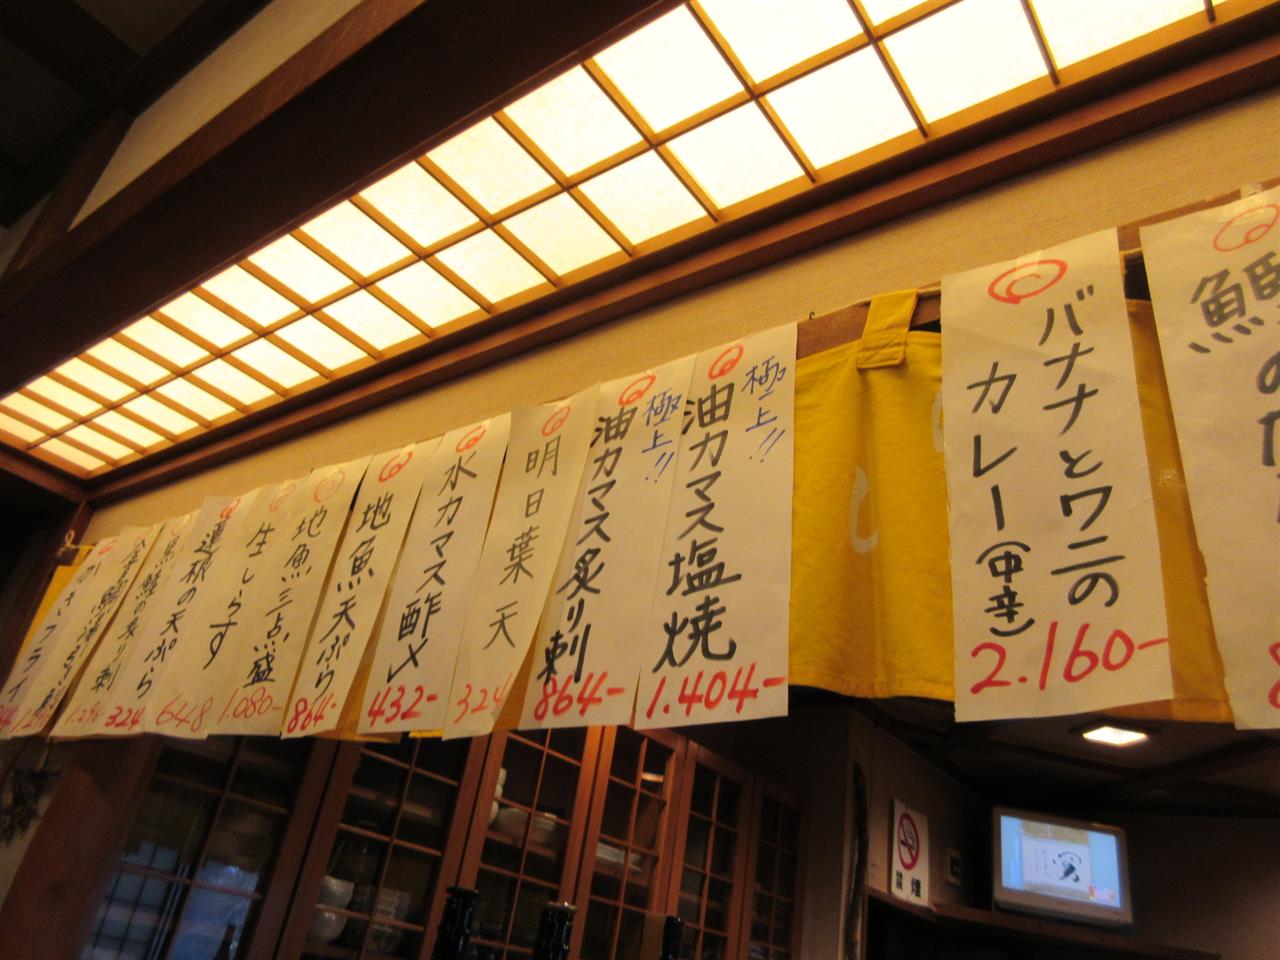 バナナとワニの
カレー(中辛)
2.160-
極上!!
油カマス塩焼
1.404-
極上!!
油カマス炙り刺
864-
明日葉天
324
水カマス酢〆
432-
地魚天ぷら
864-
地魚三点盛
1.080-
生しらす
648
蓮根の天ぷら
324
の炙り刺
フライ
禁煙